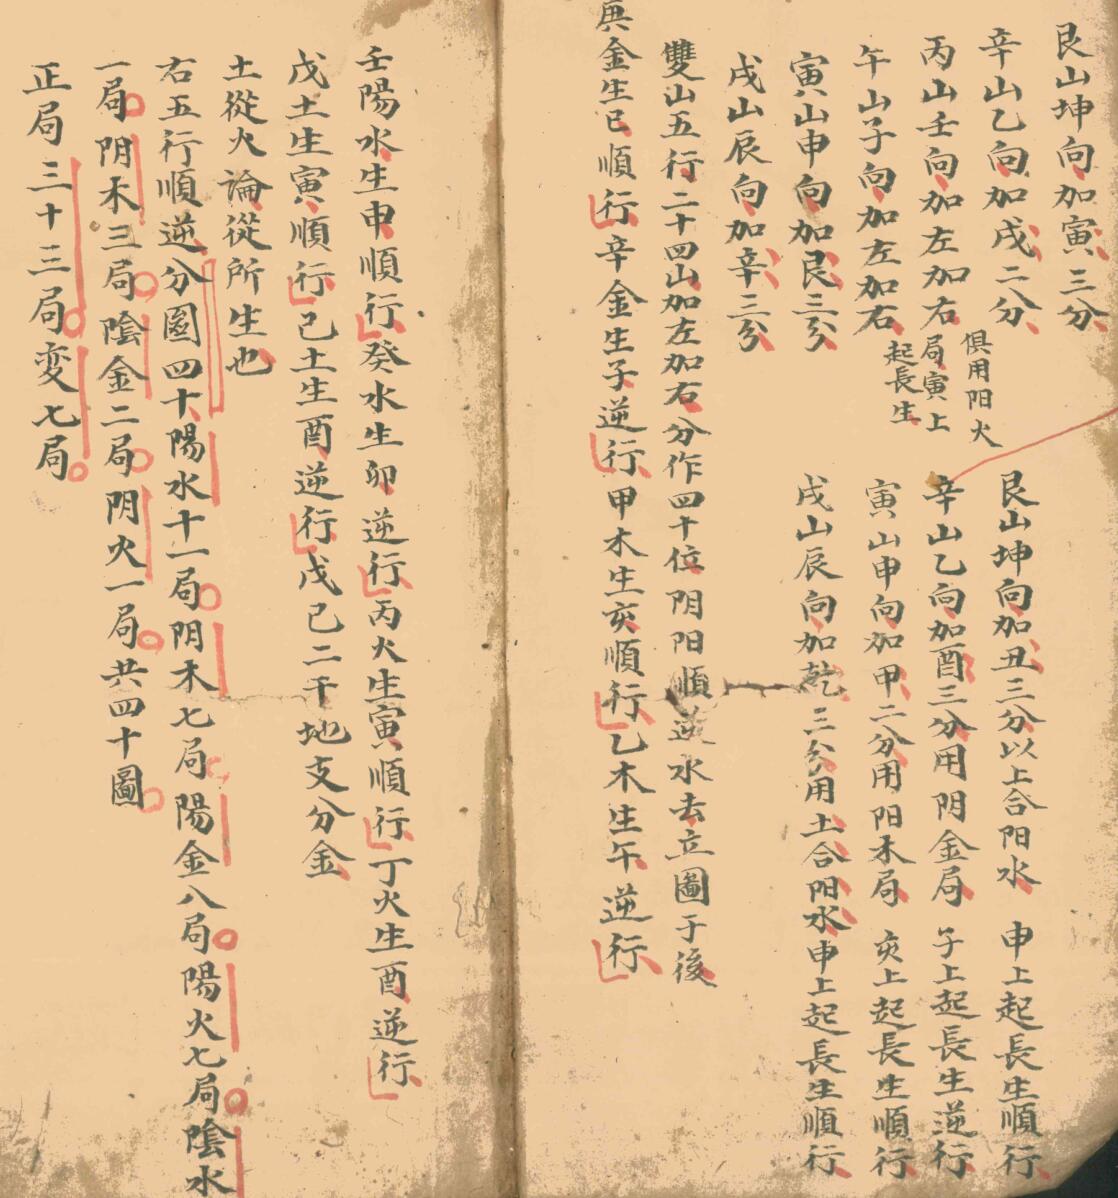 艮山坤向加寅三分
辛山乙向加戌二分
丙山壬向加左加右
午山子向加左加右
俱用阳火
局寅上
起長生
寅山申向加艮三分
戌山辰向加辛三分
艮山坤向加丑三分以上合阳水 申上起長生順行
辛山乙向加酉三分用阴金局 子上起長生逆行
寅山申向加甲二分用阳木局 亥上起長生順行
戌山辰向加乾三分用土合阳水申上起長生順行
雙山五行二十四山加左加右分作四十位阴阳順逆水去立圖于後
庚金生巳順行辛金生子逆行甲木生亥順行乙木生午逆行
壬陽水生申順行癸水生卯逆行丙火生寅順行丁火生酉逆行
戊土生寅順行己土生酉逆行戊己二干地支分金
土從火論從所生也
右五行順逆分圖四十陽水十一局阴木七局陽金八局陽火七局陰水
一局阴木三局陰金二局阴火一局共四十圖
正局三十三局変七局